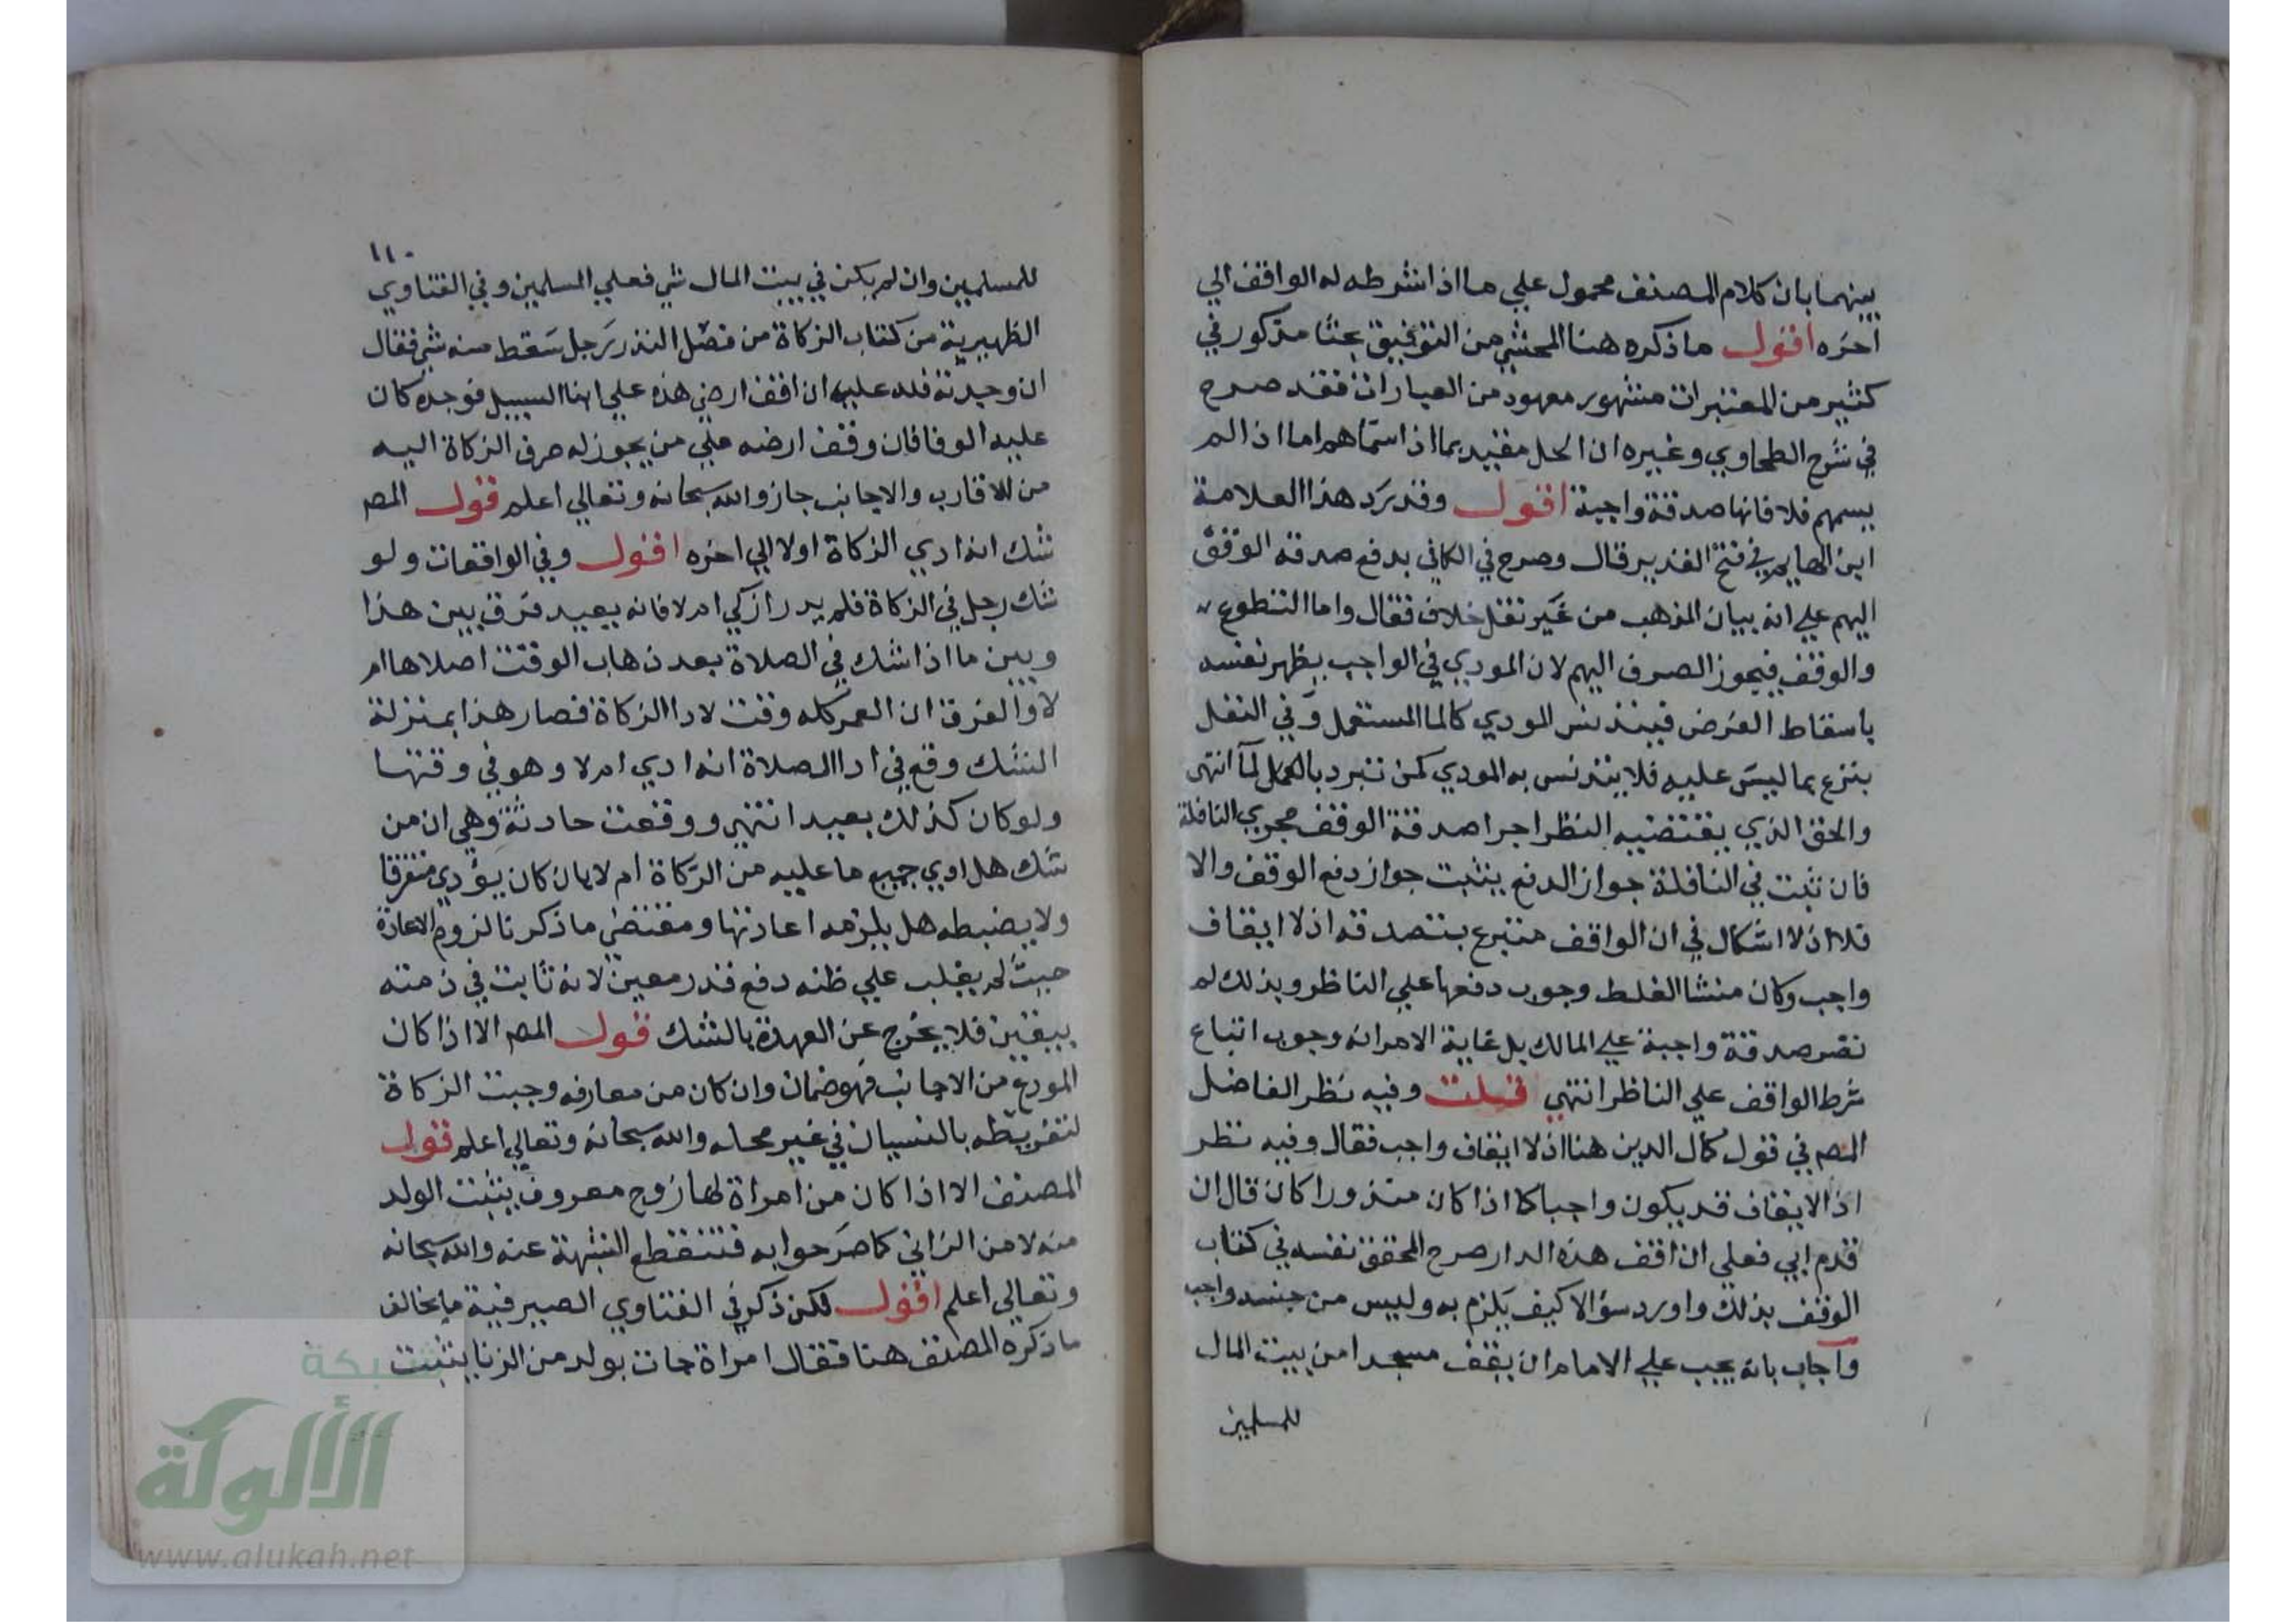 بينهما بان كلام المصنف محمول علي ما اذا شرطه له الواقف الي
اخره اقول ما ذكره هنا المحشي من التوفيق بحثا مذكور في
كثير من المعتبرات مشهور معهود من العبارات فقد صرح
في شرح الطحاوي وغيره ان الحل مقيد بما اذا سماهم اما اذا لم
يسمهم فلا فانها صدقة واجبة اقول وقد رد هذا العلامة
ابن الهمام في فتح القدير قال وصرح في الكافي بدفع صدقة الوقف
اليهم علي انه بيان المذهب من غير نقل خلاف فقال واما التطوع
والوقف فيجوز الصرف اليهم لان المودي في الواجب يطهر نفسه
باسقاط الفرض فيتدنس المودي كالما المستعمل وفي النفل
يتبرع بما ليس عليه فلا يتدنس به المودي كمن تبرد بالما انتهي
والحق الذي يقتضيه النظر اجرا صدقة الوقف مجري النافلة
فان ثبت في النافلة جواز الدفع يثبت جواز دفع الوقف والا
فلا اذ لا اشكال في ان الواقف متبرع بتصدقه اذ لا ايقاف
واجب وكان منشا الغلط وجوب دفعها علي الناظر وبذلك لم
تصر صدقة واجبة علي المالك بل غاية الامر انه وجوب اتباع
شرط الواقف علي الناظر انتهي قلت وفيه نظر الفاضل
المصم في قول كمال الدين هنا اذ لا ايقاف واجب فقال وفيه نظر
اذ الايقاف قد يكون واجبا كما اذا كان منذورا كان قال ان
قدم ابي فعلي ان اقف هذه الدار صرح المحقق نفسه في كتاب
الوقف بذلك واورد سؤالا كيف يلزم به وليس من جنسه واجب
واجاب بانه يجب علي الامام ان يقف مسجدا من بيت المال
للمسلمين
١١٠
للمسلمين وان لم يكن في بيت المال شي فعلي المسلمين وفي الفتاوي
الظهيرية من كتاب الزكاة من فصل النذر رجل سقط منه شي فقال
ان وجدته فلله عليه ان اقف ارضي هذه علي ابنا السبيل فوجده كان
عليه الوفا فان وقف ارضه علي من يجوز له صرف الزكاة اليه
من للاقارب والاجانب جاز والله سبحانه وتعالي اعلم قول المصم
شك انه ادي الزكاة اولا الي اخره اقول وفي الواقعات ولو
شك رجل في الزكاة فلم يدر ازكي ام لا فانه يعيد فرق بين هذا
وبين ما اذا شك في الصلاة بعد ذهاب الوقت اصلاها ام
لا والفرق ان العمر كله وقت لادا الزكاة فصار هذا بمنزلة
الشك وقع في ادا الصلاة انه ادي ام لا وهو في وقتها
ولو كان كذلك يعيد انتهي ووقعت حادثة وهي ان من
شك هل ادي جميع ما عليه من الزكاة ام لا بان كان يؤدي متفرقا
ولا يضبطه هل يلزمه اعادتها ومقتضي ما ذكرنا لزوم الاعادة
حيث لم يغلب علي ظنه دفع قدر معين لانه ثابت في ذمته
بيقين فلا يخرج عن العهدة بالشك قول المصم الا اذا كان
المودع من الاجانب فهو ضمان وان كان من معارفه وجبت الزكاة
لتفريطه بالنسيان في غير محله والله سبحانه وتعالي اعلم قول
المصنف الا اذا كان من امراة لها زوج معروف يثبت الولد
منه لا من الزاني كما صرحوا به فتنقطع الشبهة عنه والله سبحانه
وتعالي اعلم اقول لكن ذكر في الفتاوي الصيرفية ما يخالف
ما ذكره المصنف هنا فقال امراة جات بولد من الزنا يثبت
شبكة
الألوكة
www.alukah.net